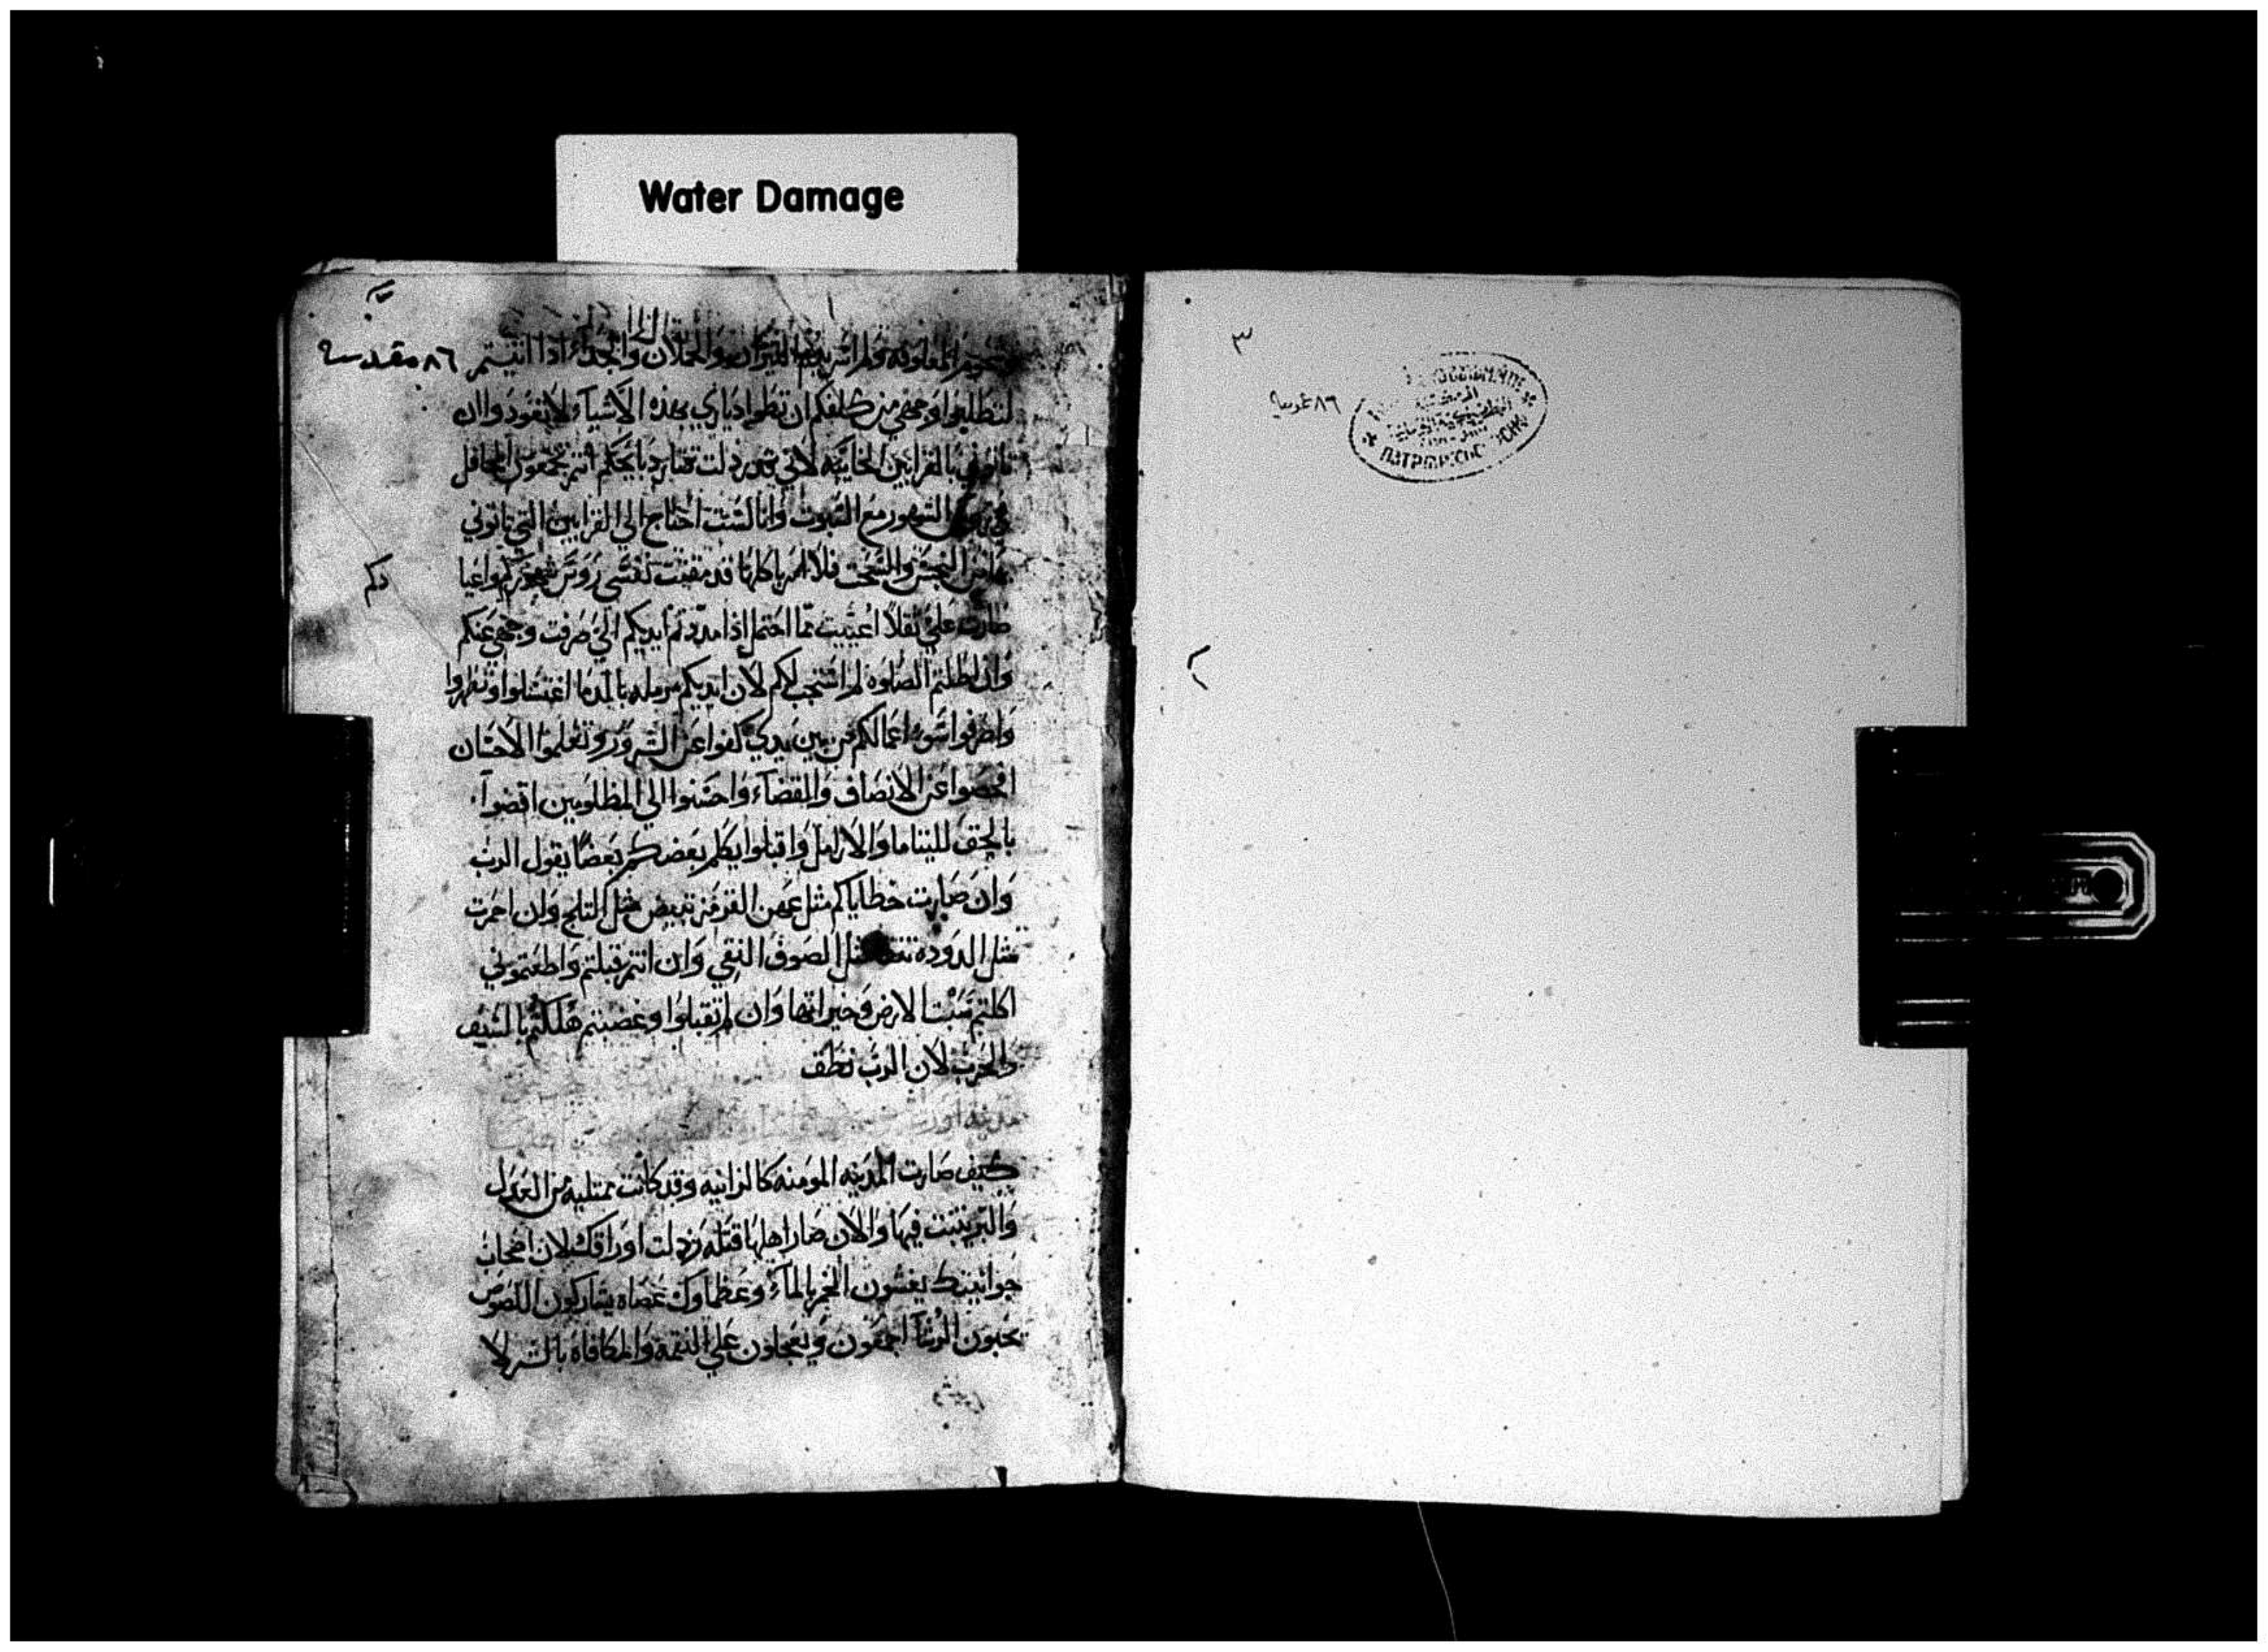 Water Damage
٣
٨٦ قدسه
٨٦ مقدسه
المعلوفه ودم الثيران والحملان والجداء اذا اتيتم
لتطلبوا وجهي من كلفكم ان تطوا دياري بهذه الاشياء لا تعودوا ان
تاتوني بالقرابين الخايبه لاني قد رذلت انتم تجتمعون المحافل
الشهور مع السبوت وانا لست احتاج الي القرابين التي تاتوني
بها من النجس والسحت فلا امر باكلها قد مقتت نفسي روس شهوركم واعيا
دكم
صارت علي ثقلا اعييت مما احتمل اذا مددتم ايديكم الي صرفت وجهي عنكم
وان اطلتم الصلوه لم استجب لكم لان ايديكم بالدما اغتسلوا وتطهروا
واصرفوا سوء اعمالكم من بين يدي كفوا عن الشرور وتعلموا الاحسان
افحصوا عن الانصاف والقضاء واحسنوا الي المظلومين اقضوا
بالحق لليتاما والارامل واقبلوا يكلم بعضكم بعضا يقول الرب
وان صارت خطاياكم مثل عهن القرمز تبيض مثل الثلج وان احمرت
مثل الدوده مثل الصوف النقي وان انتم قبلتم واطعتموني
اكلتم الارض وخيراتها وان لم تقبلوا وغضبتم هلكتم بالسيف
والحرب لان الرب نطق
كيف صارت المدينه المومنه كالزانيه وقد كانت ممتليه من العدل
والبر يثبت فيها والان صار اهلها قتله رذلت اوراقك لان اصحاب
حوانيتك يغشون الخمر بالماء وعظماوك عصاه يشاركون اللصوص
يحبون الرشا اجمعون ويعجلون علي النقمة والمكافاه بالشر لا